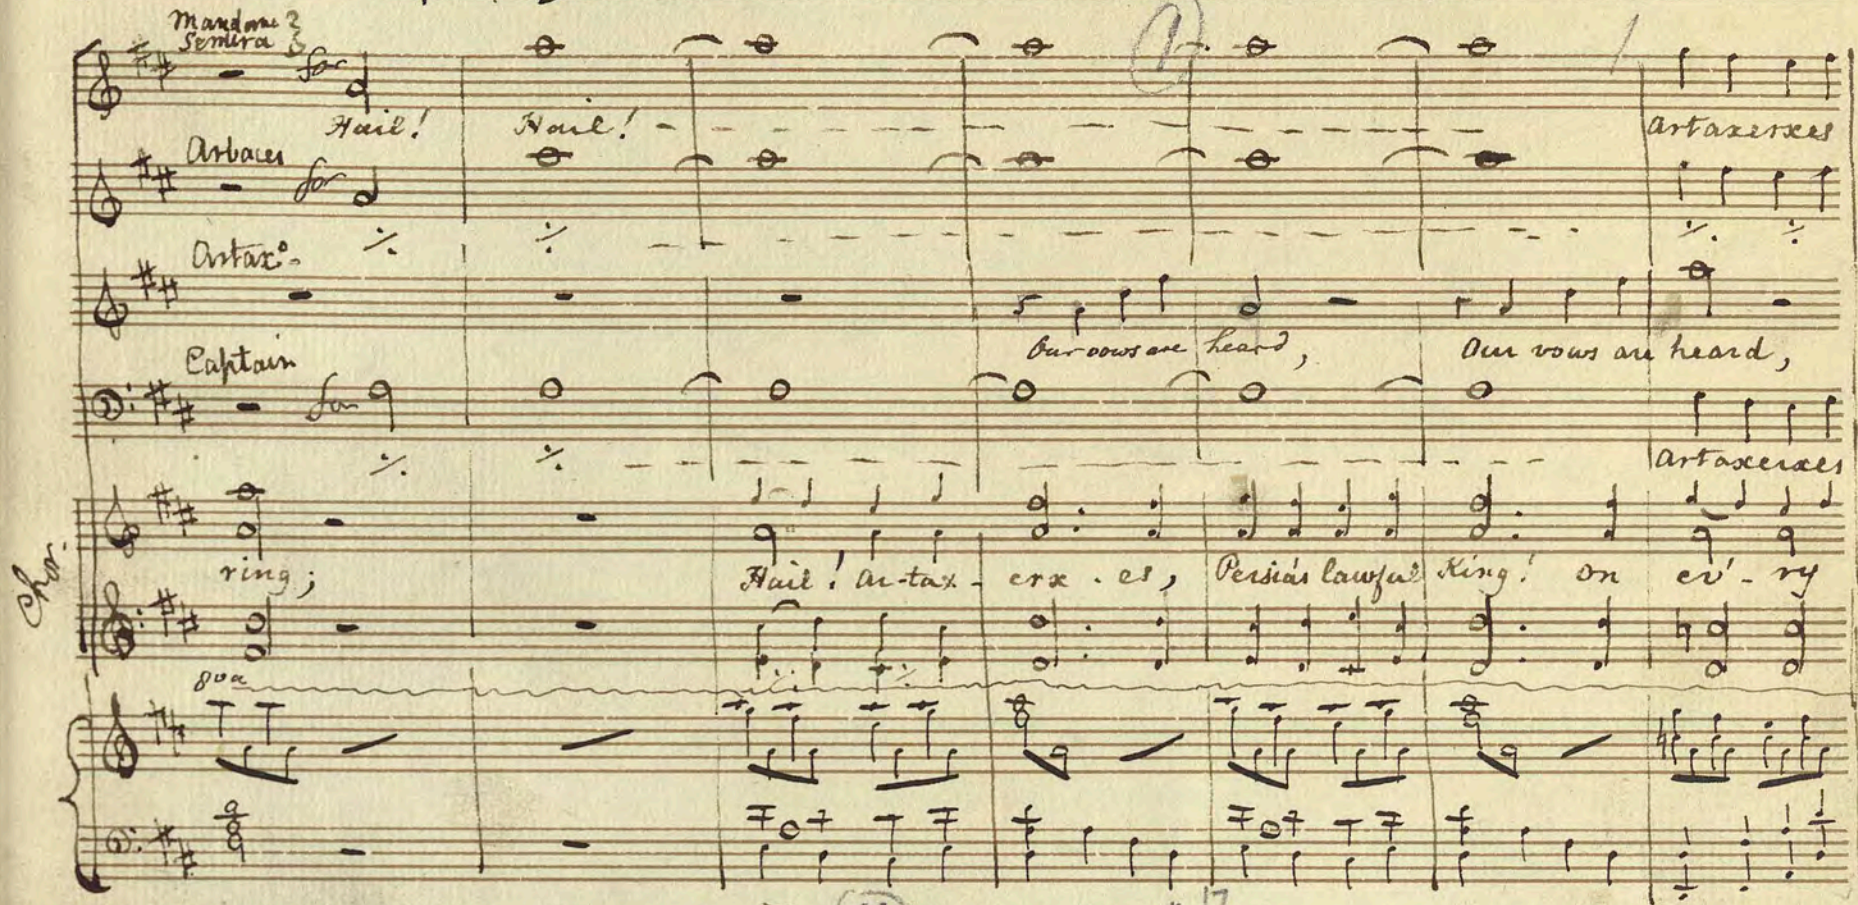 Mandane
Semira
for
Hail! Hail! Artaxerxes
Arbaces
for
Artaxs.
Our vows are heard, Our vows are heard,
Captain
for
Artaxerxes
Chor.
ring; Hail! Ar-tax-erx-es, Persia's lawful King! On ev'-ry
8va
17